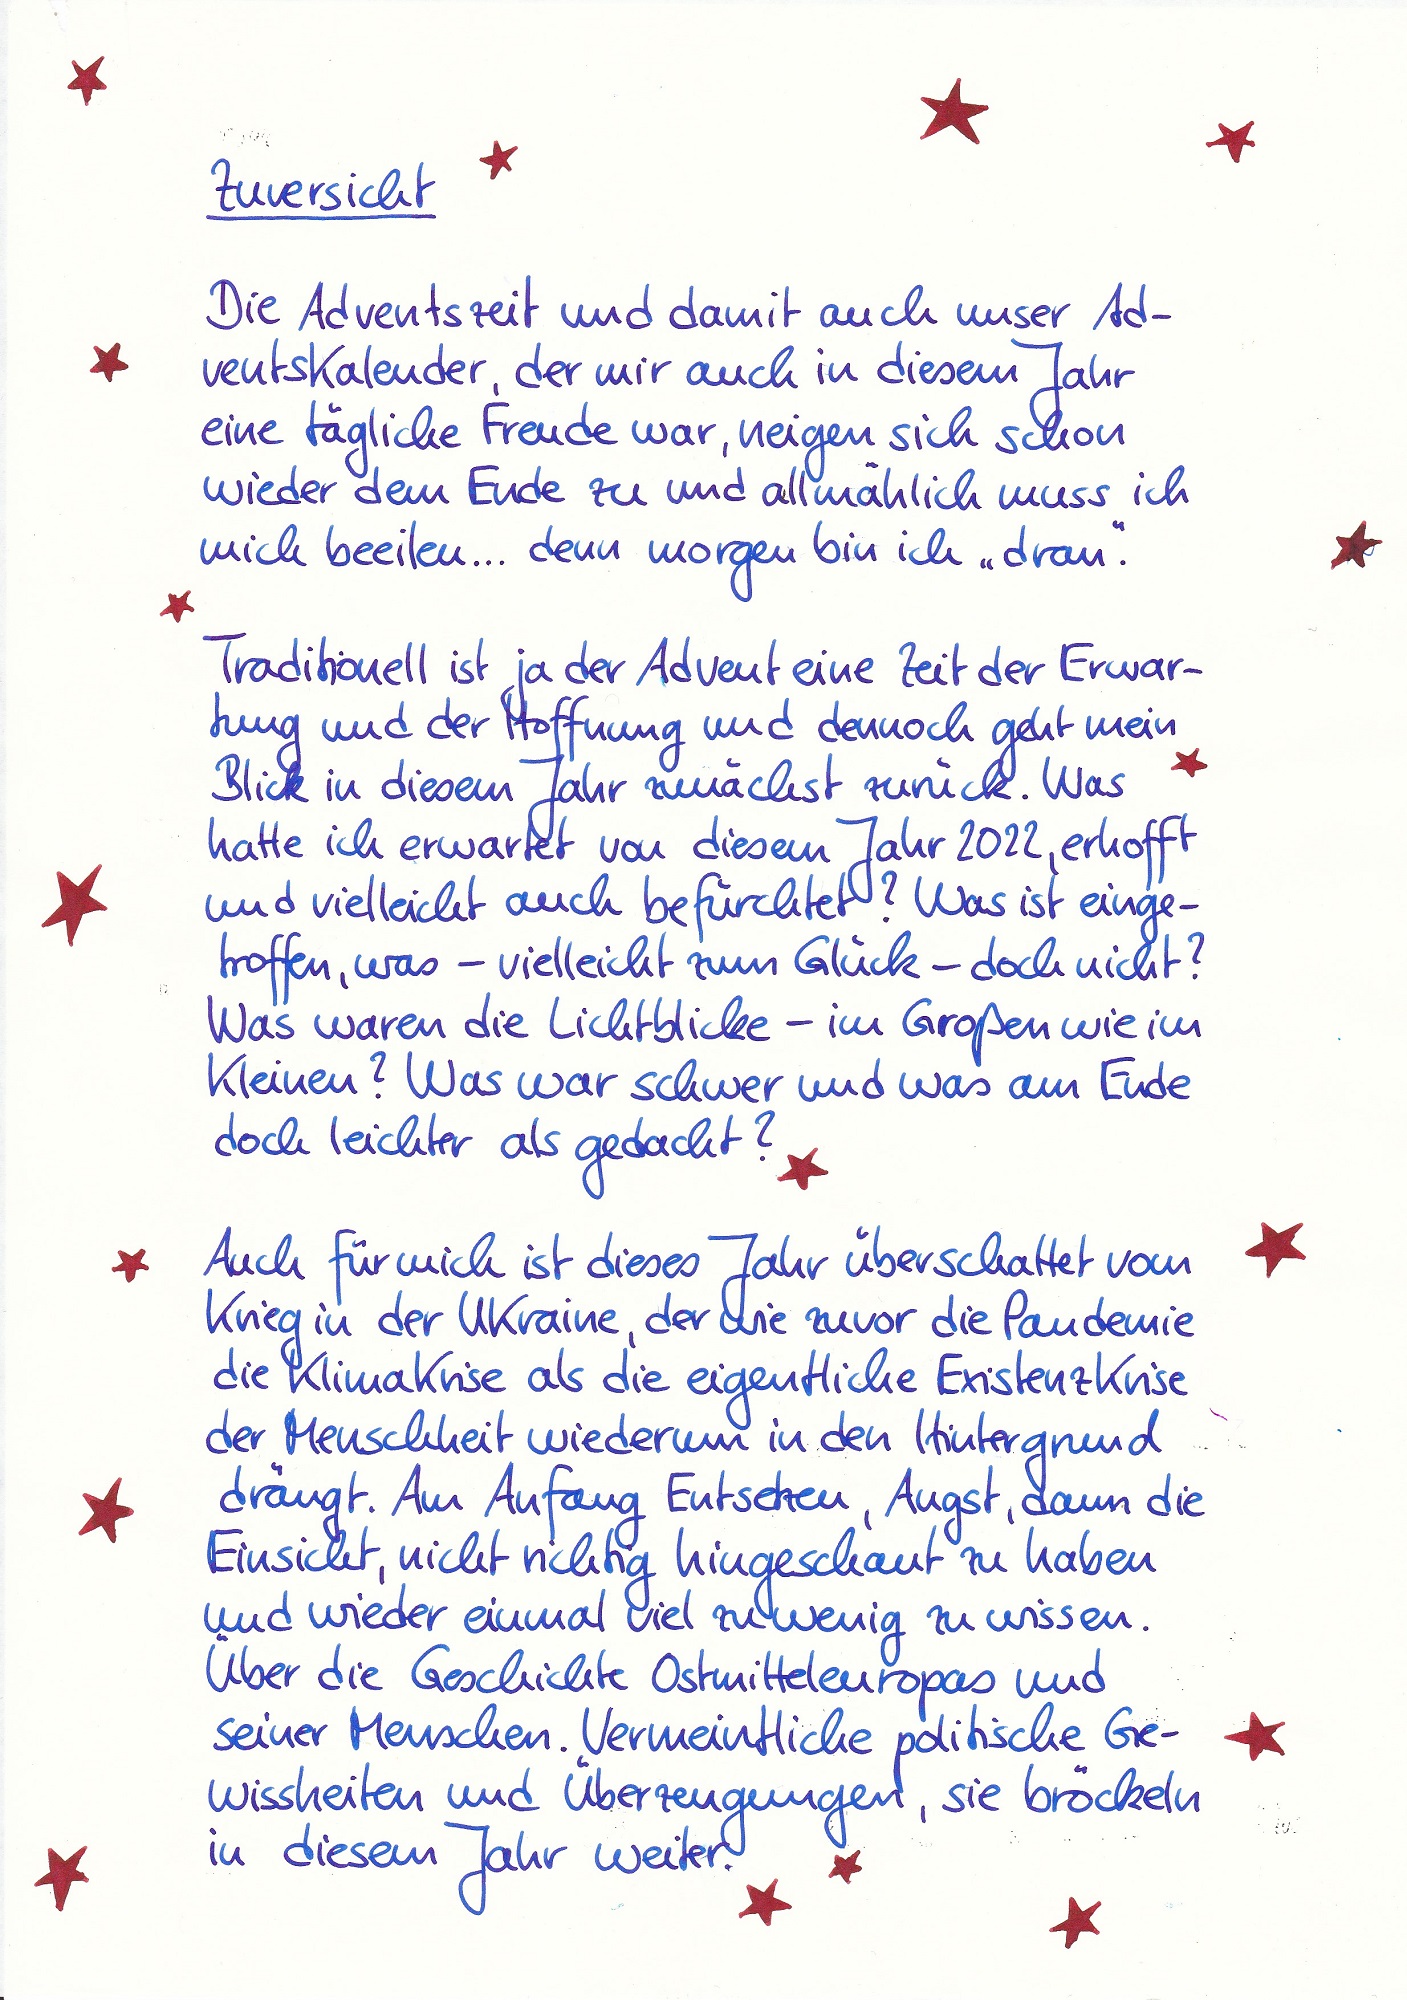 Zuversicht
Die Adventszeit und damit auch unser Ad-
ventskalender, der mir auch in diesem Jahr
eine tägliche Freude war, neigen sich schon
wieder dem Ende zu und allmählich muss ich
mich beeilen... denn morgen bin ich „dran“.
Traditionell ist ja der Advent eine Zeit der Erwar-
tung und der Hoffnung und dennoch geht mein
Blick in diesem Jahr zunächst zurück. Was
hatte ich erwartet von diesem Jahr 2022, erhofft
und vielleicht auch befürchtet? Was ist einge-
troffen, was – vielleicht zum Glück – doch nicht?
Was waren die Lichtblicke – im Großen wie im
Kleinen? Was war schwer und was am Ende
doch leichter als gedacht?
Auch für mich ist dieses Jahr überschattet vom
Krieg in der Ukraine, der wie zuvor die Pandemie
die Klimakrise als die eigentliche Existenzkrise
der Menschheit wiederum in den Hintergrund
drängt. Am Anfang Entsetzen, Angst, dann die
Einsicht, nicht richtig hingeschaut zu haben
und wieder einmal viel zu wenig zu wissen.
Über die Geschichte Ostmitteleuropas und
seiner Menschen. Vermeintliche politische Ge-
wissheiten und Überzeugungen, sie bröckeln
in diesem Jahr weiter.